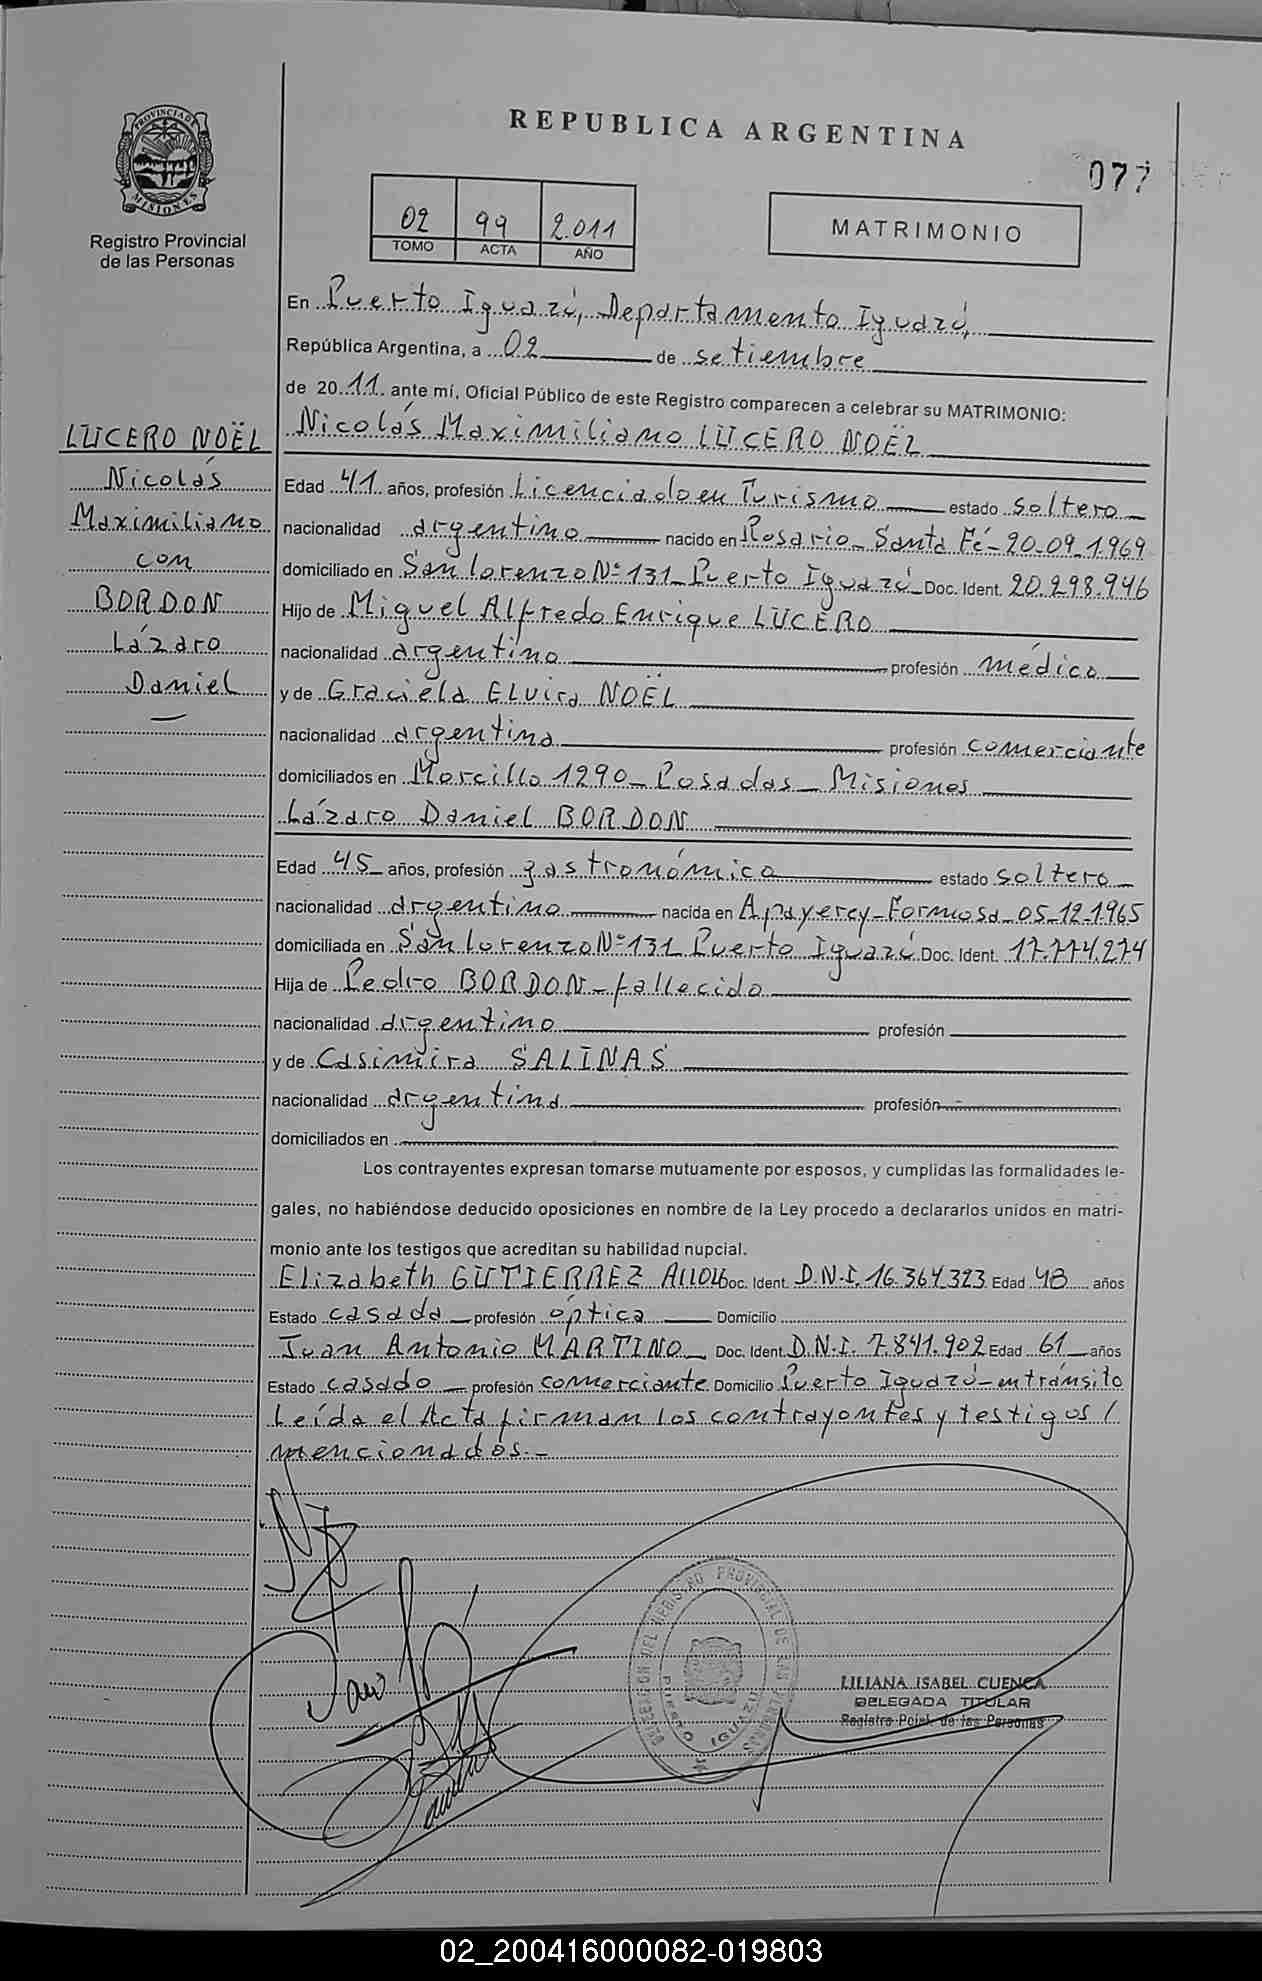 PROVINCIA DE
MISIONES
Registro Provincial
de las Personas
REPUBLICA ARGENTINA
077
02 99 2.011
TOMO ACTA AÑO
MATRIMONIO
LUCERO NOËL
Nicolás
Maximiliano
con
BORDON
Lázaro
Daniel
En Puerto Iguazú, Departamento Iguazú,
República Argentina, a 02 de setiembre
de 20 11 ante mí, Oficial Público de este Registro comparecen a celebrar su MATRIMONIO:
Nicolás Maximiliano LUCERO NOËL
Edad 41 años, profesión Licenciado en Turismo estado soltero
nacionalidad argentino nacido en Rosario - Santa Fé - 20-09-1969
domiciliado en San Lorenzo Nº 131 - Puerto Iguazú Doc. Ident. 20.298.946
Hijo de Miguel Alfredo Enrique LUCERO
nacionalidad argentino profesión médico
y de Graciela Elvira NOËL
nacionalidad argentina profesión comerciante
domiciliados en Morcillo 1290 - Posadas - Misiones
Lázaro Daniel BORDON
Edad 45 años, profesión gastronómico estado soltero
nacionalidad argentino nacida en Apayerey - Formosa - 05-12-1965
domiciliada en San Lorenzo Nº 131 Puerto Iguazú Doc. Ident. 17.774.274
Hija de Pedro BORDON - fallecido
nacionalidad argentino profesión
y de Casimira SALINAS
nacionalidad argentina profesión
domiciliados en
Los contrayentes expresan tomarse mutuamente por esposos, y cumplidas las formalidades le-
gales, no habiéndose deducido oposiciones en nombre de la Ley procedo a declararlos unidos en matri-
monio ante los testigos que acreditan su habilidad nupcial.
Elizabeth GUTIERREZ Doc. Ident. D.N.I. 16.364.323 Edad 48 años
Estado casada profesión óptica Domicilio
Juan Antonio MARTINO Doc. Ident. D.N.I. 7.841.902 Edad 61 años
Estado casado profesión comerciante Domicilio Puerto Iguazú - en tránsito
Leída el Acta firman los contrayentes y testigos /
mencionados.-
DELEGACION DEL REGISTRO PROVINCIAL DE LAS PERSONAS
PUERTO IGUAZU
LILIANA ISABEL CUENCA
DELEGADA TITULAR
Registro Pcial. de las Personas
02_200416000082-019803